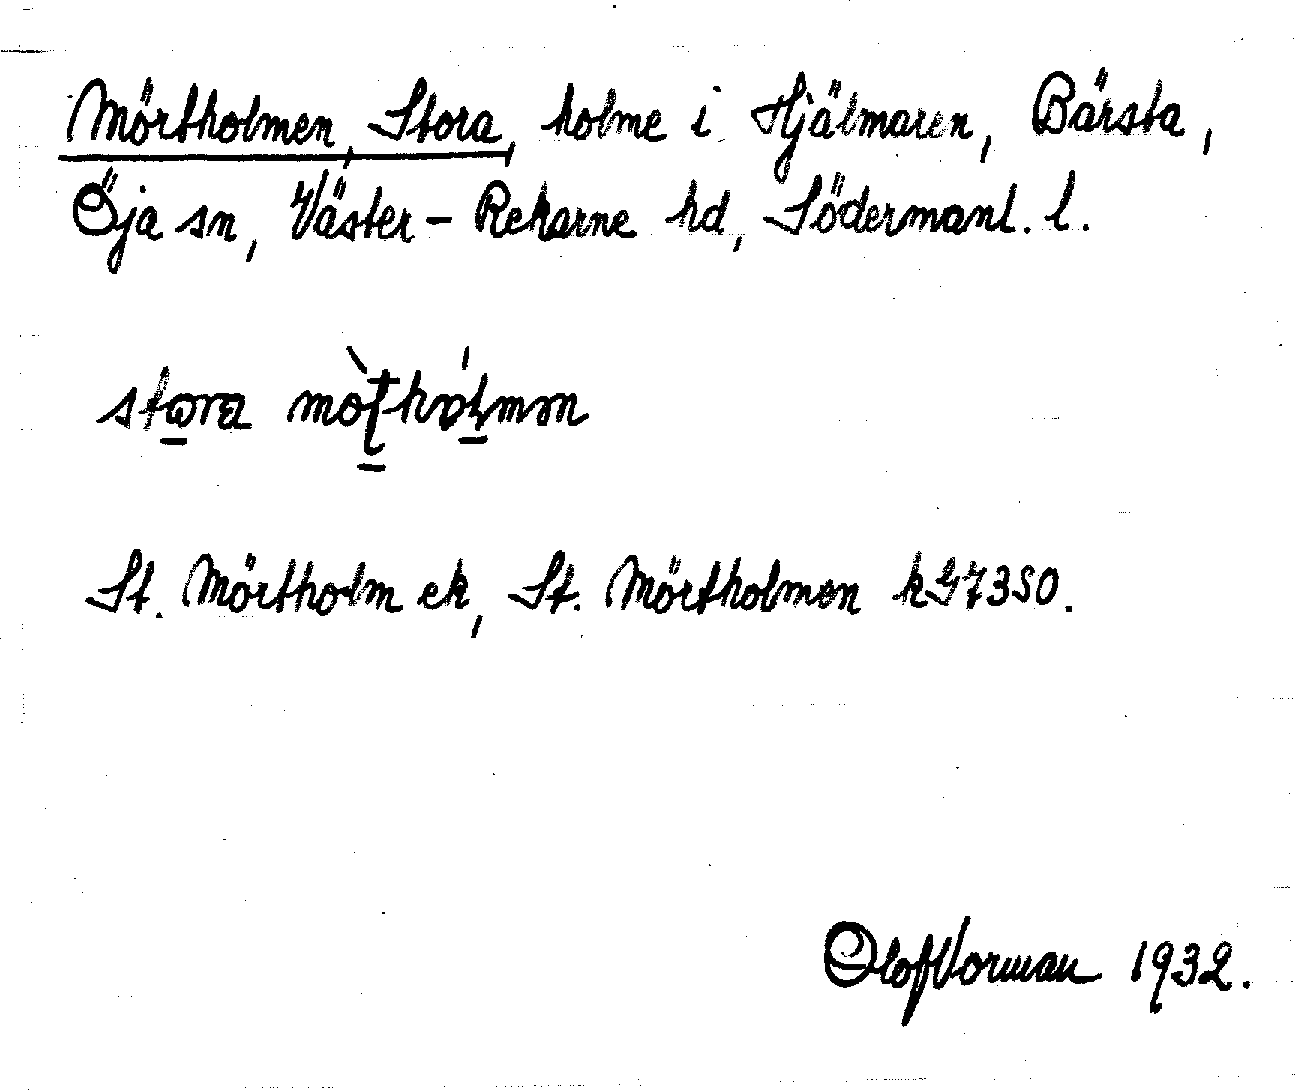 Mörtholmen, Stora, holme i Hjälmaren, Bärsta,
Öja sn, Väster-Rekarne hd, Södermanl. l.
stora
St. Mörtholm ek, St. Mörtholmen k G7350.
Olof Norman 1932.